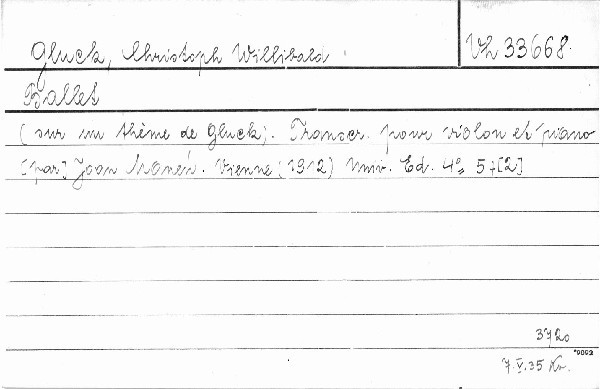 Gluck, Christoph Willibald
Vh 33668.
Ballet
(sur un thème de Gluck). Transcr. pour violon et piano
[par] Joan Manén. Vienne (1912) Univ. Ed. 4°, 5+[2]
3720
*9092
7.V.35 Kr.